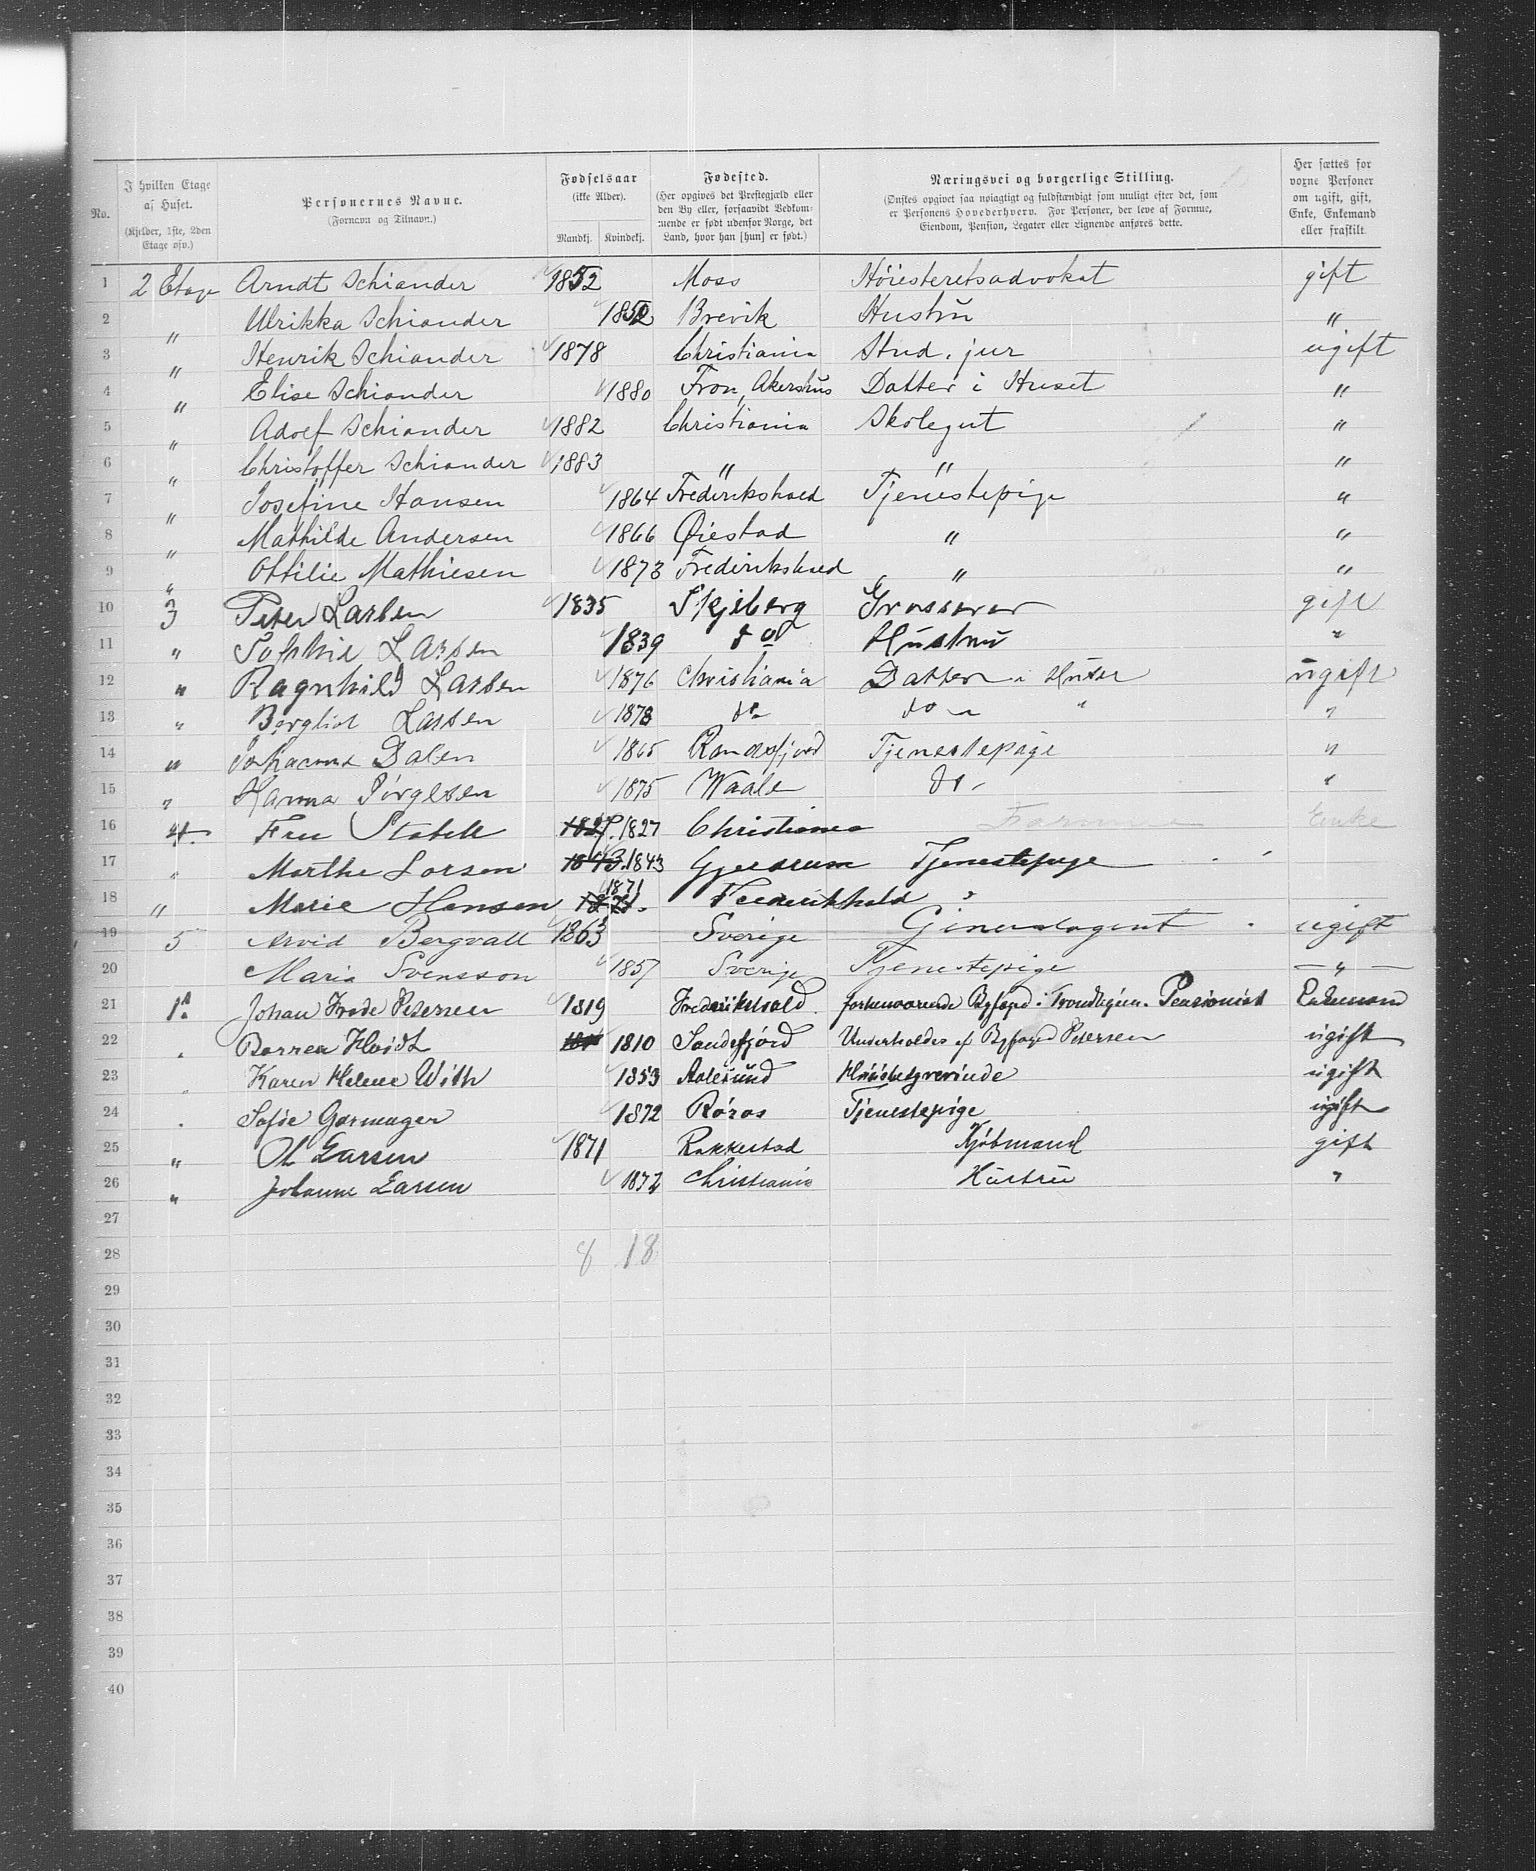 No. | I hvilken Etage af Huset. (Kjelder, 1ste, 2den Etage osv.) | Personernes Navne. (Fornavn og Tilnavn.) | Fødselsaar (ikke Alder). Mandkj. | Kvindekj. | Fødested. (Her opgives det Prestegjæld eller den By eller, forsaavidt Vedkommende er født udenfor Norge, det Land, hvor han [hun] er født.) | Næringsvei og borgerlige Stilling. (Ønskes opgivet saa nøiagtigt og fuldstændigt som muligt efter det, som er Personens Hovederhverv. For Personer, der leve af Formue, Eiendom, Pension, Legater eller Lignende anføres dette. | Her sættes for voxne Personer om ugift, gift, Enke, Enkemand eller fraskilt
1 2 Etage Arndt Schiander 1852 Moss Höiesteretsadvokat gift
2 " Ulrikka Schiander 1852 Brevik Hustru "
3 " Henrik Schiander 1878 Christiania Stud. jur ugift
4 " Elise Schiander 1880 Fron, Akershus Datter i Huset "
5 " Adolf Schiander 1882 Christiania Skolegut "
6 " Christoffer Schiander 1883 " " "
7 " Josefine Hansen 1864 Frederikshald Tjenestepige "
8 " Mathilde Andersen 1866 Øiestad " "
9 " Ottilie Mathiesen 1873 Frederikshald " "
10 3 Peter Larsen 1835 Skjeberg Grosserer gift
11 " Sophie Larsen 1839 do Hustru "
12 " Ragnhild Larsen 1876 Christiania Datter i Huset ugift
13 " Borghild Larsen 1878 do do " "
14 " Johanna Dalen 1865 Randsfjord Tjenestepige "
15 " Hanna Jörgesen 1875 Waale do "
16 4 Fru Stabell 1827 1827 Christiania Formue Enke
17 " Marthe Larsen 1843 1843 Gjerdrum Tjenestepige
18 " Marie Hansen 1871 1871 Frederikhald "
19 5 Arvid Bergvall 1863 Sverige Generalagent ugift
20 Maria Svensson 1857 Sverige Tjenestepige "
21 1. Johan Petersen 1819 Frederikshald. forhenværende Byfoged i Trondhjem. Pensionist Enkemand
22 " Hvidt 1810 Sandefjord Underholdes af Byfoged Petersen ugift
23 " Karen Helene With 1853 Aalesund Huusbestyrerinde ugift
24 " Sofie Garmager 1872 Röros Tjenestepige ugift
25 " Ol Larsen 1871 Rakkestad Kjöbmand gift
26 " Johanne Larsen 1872 Christiania Hustru "
27
28 8 18
29
30
31
32
33
34
35
36
37
38
39
40